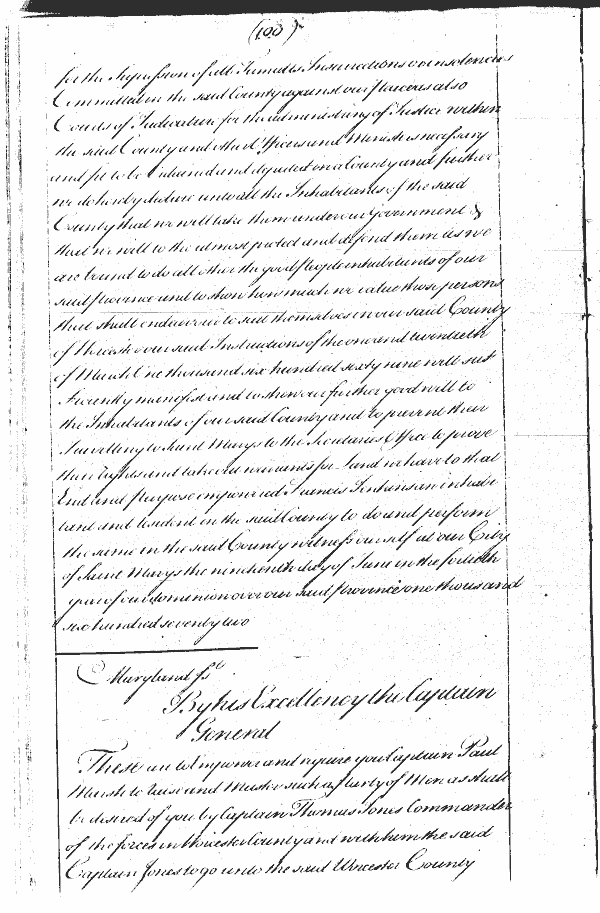 (100)
for the Supression of all Tumults Insurrections or insolencies
Committed in the said County against our Peace as also
Courts of Judicature for the administring of Justice within
the said County and other Officers and Ministers necessary
and fit to be ordained and deputed in a County and further
we do hereby declare unto all the Inhabitants of the said
County that we will take them under our Government &
that we will to the utmost protect and defend them as we
are bound to do all other the good People inhabitants of our
said Province and to shew how much we value those persons
that shall endeavour to seat themselves in our said County
of Worcester our said Instructions of the one and twentieth
of March One thousand six hundred sixty nine will suf
ficiently manifest and to shew our further good will to
the Inhabitants of our said County and to prevent their
Travelling to Saint Marys to the Secretaries Office to prove
their rights and take out warrants for Land we have to that
End and Purpose empowered Francis Jenkins an inhabi
tant and resident in the said County to do and perform
the same in the said County witness our self at our City
of Saint Marys the nineteenth day of June in the fortieth
year of our dominion over our said Province one thousand
six hundred seventy two
Maryland ss
By his Excellency the Captain
General
These are to Impower and require you Captain Paul
Marsh to raise and Muster such a Party of Men as shall
be desired of you by Captain Thomas Jones Commander
of the forces in Worcester County and with them the said
Captain Jones to go unto the said Worcester County